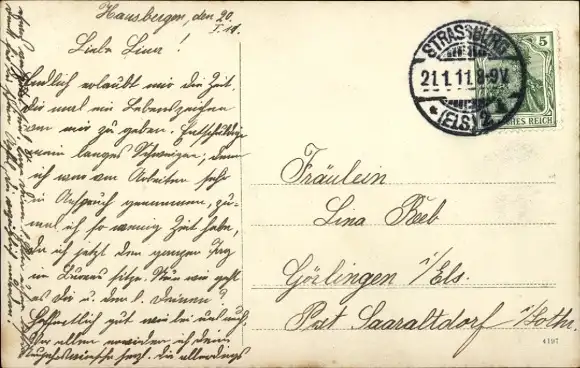 Hausbergen, den 20.
I. 11.
Liebe Lina!
Endlich erlaubt mir die Zeit,
dir mal ein Lebenszeichen
von mir zu geben. Entschuldige
mein langes Schweigen, denn
ich war am Arbeiten sehr
in Anspruch genommen, zu-
mal ich so wenig Zeit habe,
da ich jetzt den ganzen Tag
im Bureau sitze. Nun wie geht
es dir u. den l. Deinen?
Hoffentlich gut wie bei uns auch.
Vor allem erwidere ich dein
Neujahrswünsche herzl. die allerdings
STRASSBURG
21.1.11.8-9V.
* (ELS.) 2
5
DEUTSCHES REICH
Fräulein
Lina Reeb
Görlingen i/Els.
Post Saaraltdorf i/Lothr.
4197